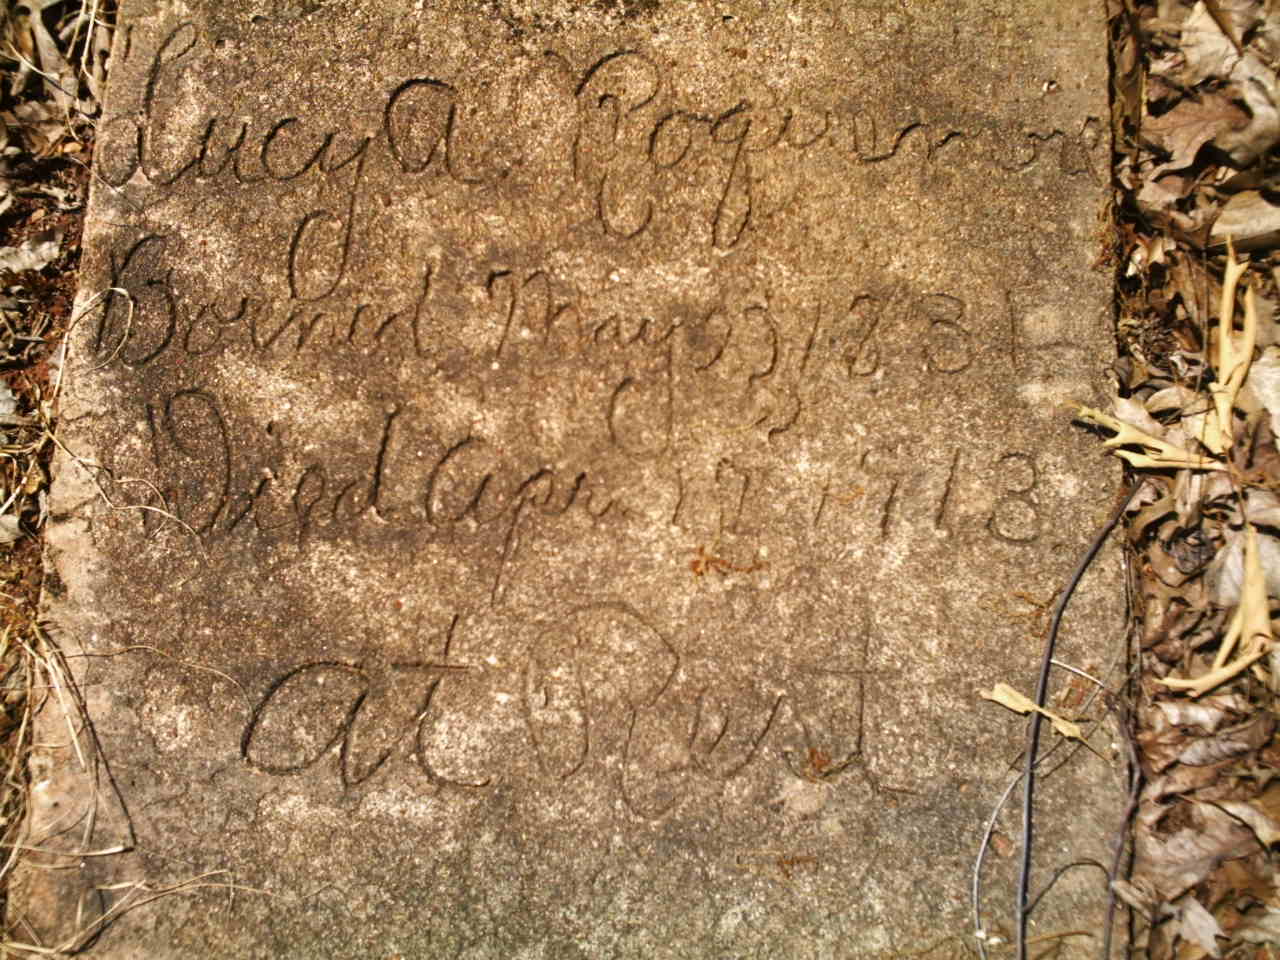 Lucy A Rogers
Borned May 23 1831
Died Apr 12 1913
At Rest